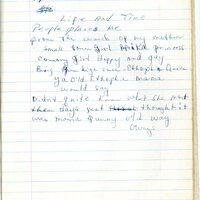 Life And Time
People please me
from the womb of my mother
small town girl princess
Country girl Happy and gay
Being high Queen
ya old Ethiopia mama
would say
Didn't quite know what she ment
them days just thought it
was mama funny old way